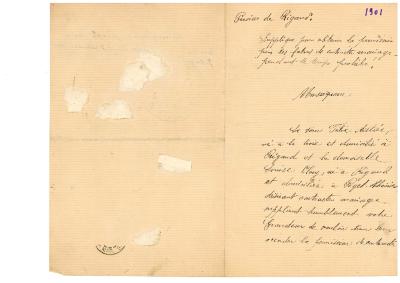 1901
de Rigaud.
Supplique pour obtenir la permission
pour les futurs de contracter mariage
pendant le temps prohibé.
Monseigneur.
Le sieur
né à la et domicilié à
Rigaud et la demoiselle
Louise née à Rigaud
et domiciliée à Puget-Théniers
désirant contracter mariage
supplient humblement votre
Grandeur de vouloir bien leur
accorder la permission de contracter